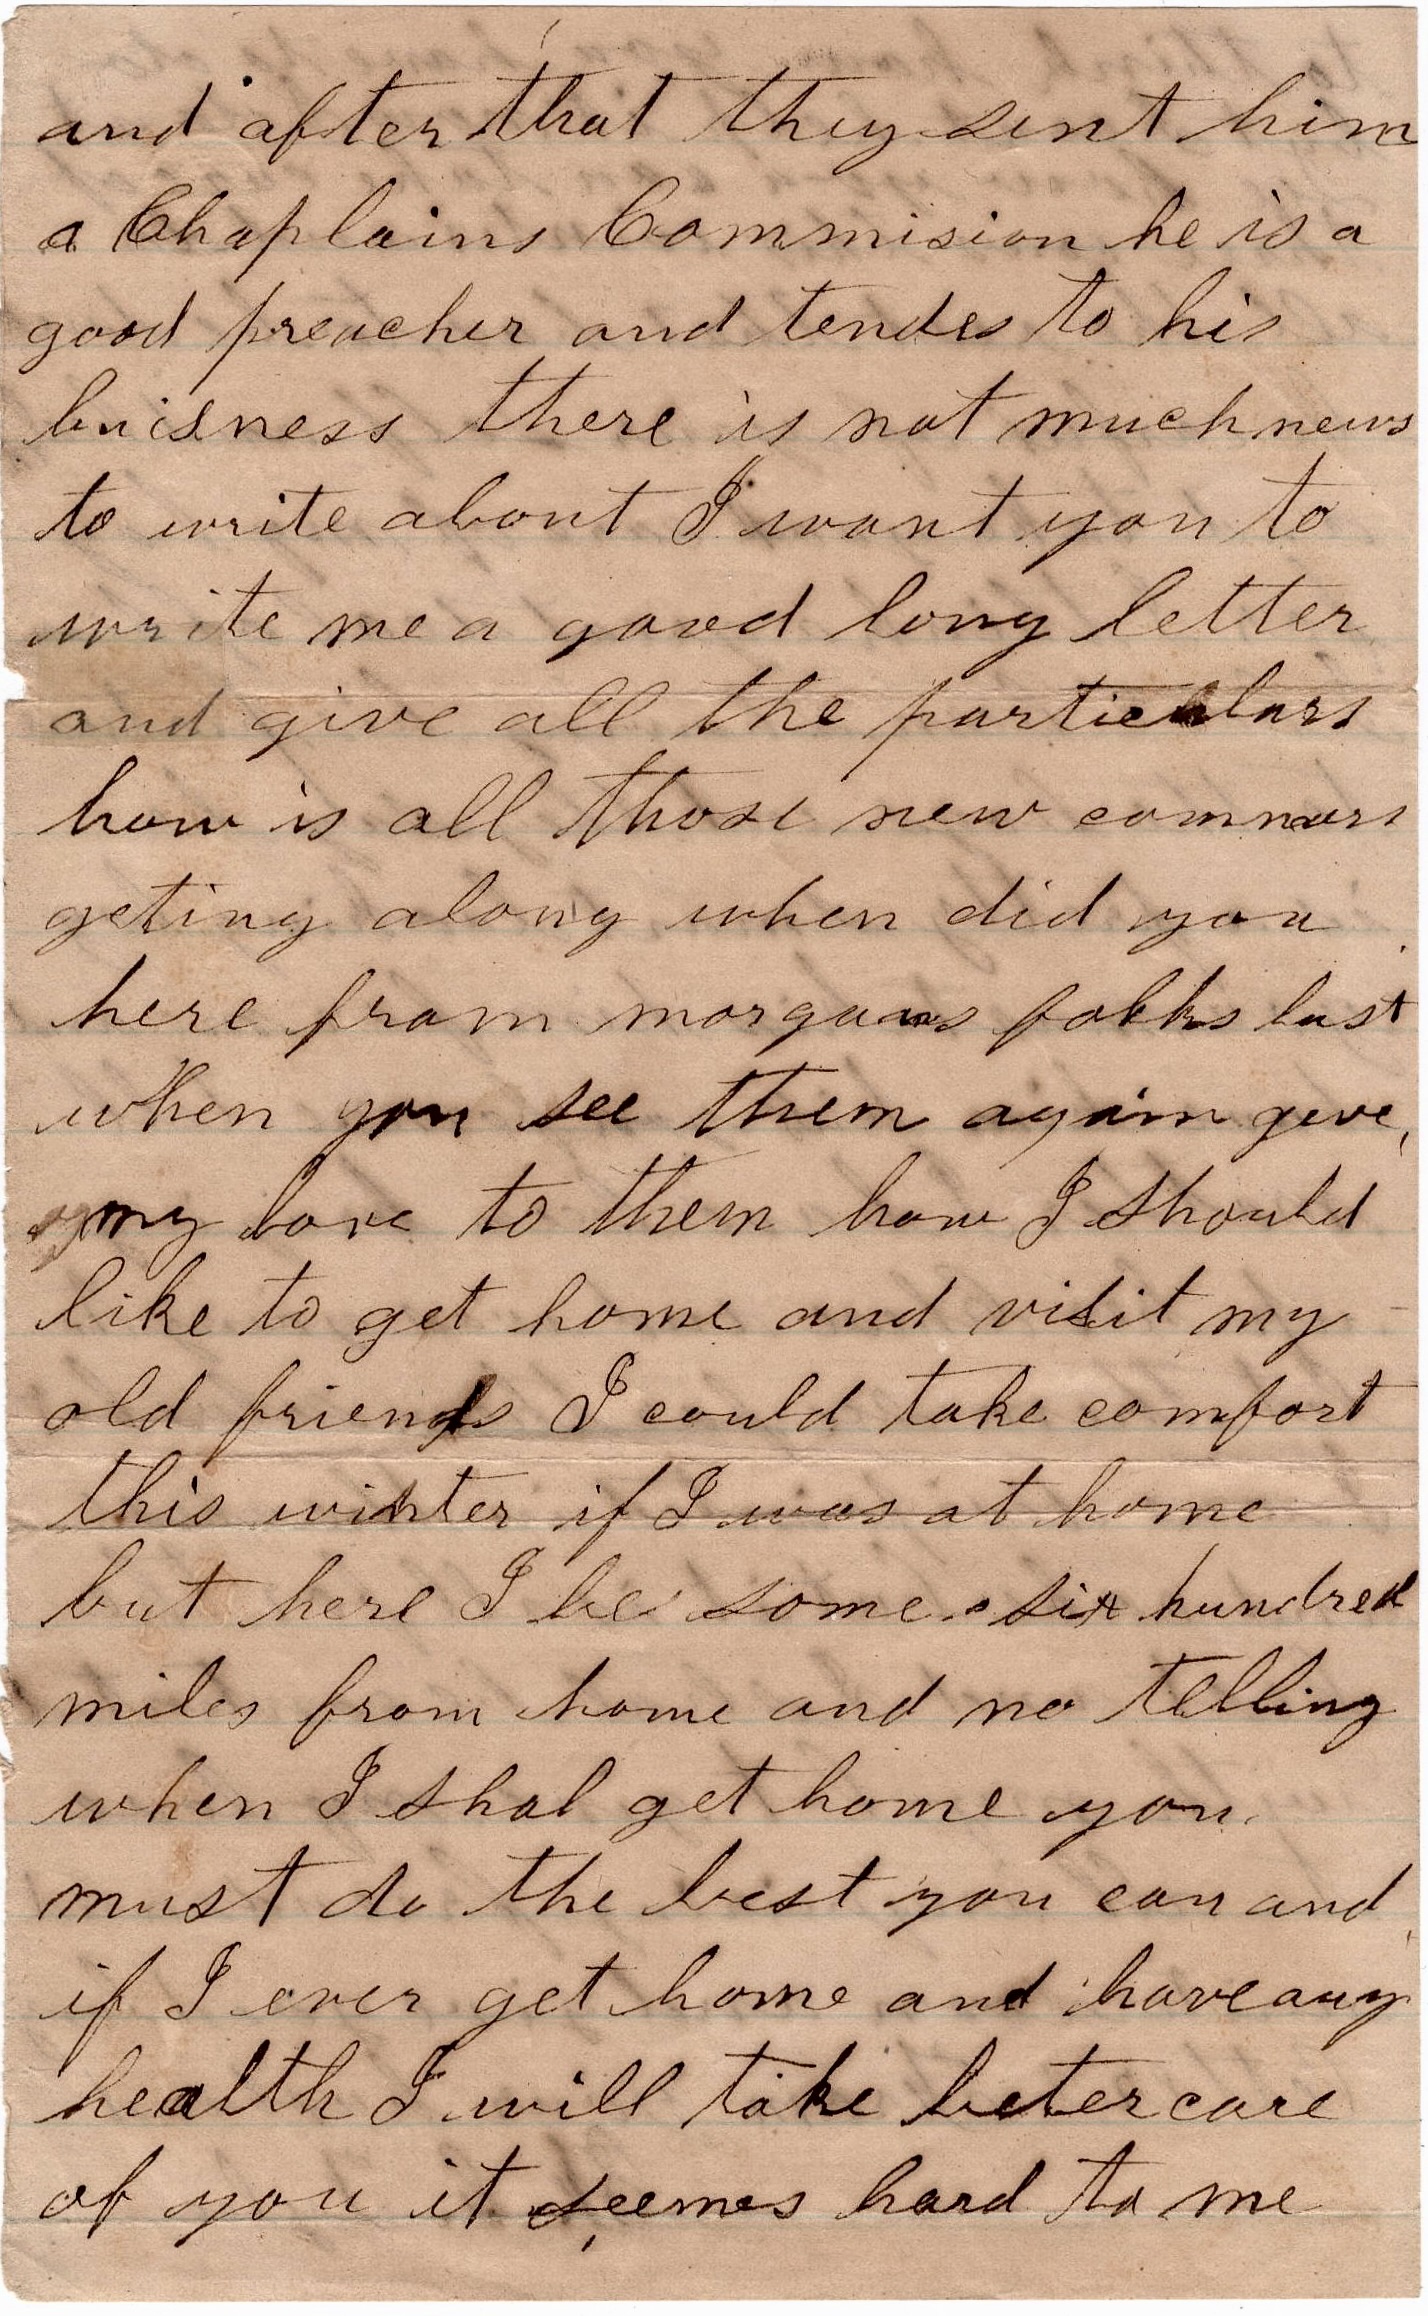 and after that they sent him
a Chaplains Commision he is a
good preacher and tendes to his
buisness there is not much news
to write about I want you to
write me a good long letter
and give all the particulars
how is all those new commers
geting along when did you
here from morgans folks last
when you see them again geve
my love to them how I should
like to get home and visit my
old friends I could take comfort
this winter if I was at home
but here I be some six hundred
miles from home and no telling
when I shal get home you
must do the best you can and
if I ever get home and have any
health I will take beter care
of you it seemes hard to me